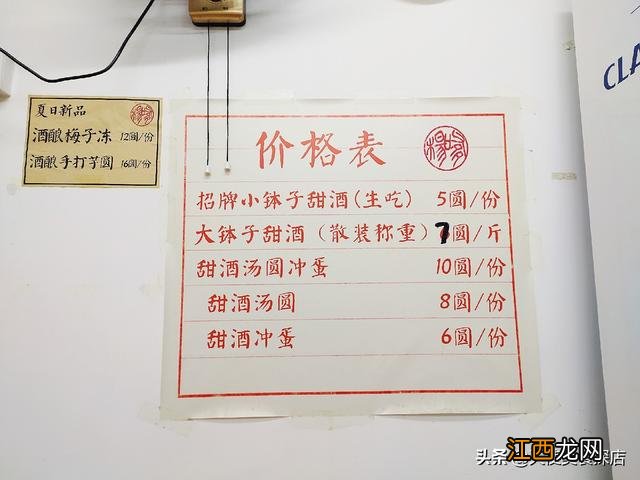 夏日新品
酒酿梅子冻 12圆/份
酒酿手打芋圆 16圆/份
价格表
招牌小钵子甜酒(生吃) 5圆/份
大钵子甜酒(散装称重) 7圆/斤
甜酒汤圆冲蛋 10圆/份
甜酒汤圆 8圆/份
甜酒冲蛋 6圆/份
CLA
头条
江西龙网